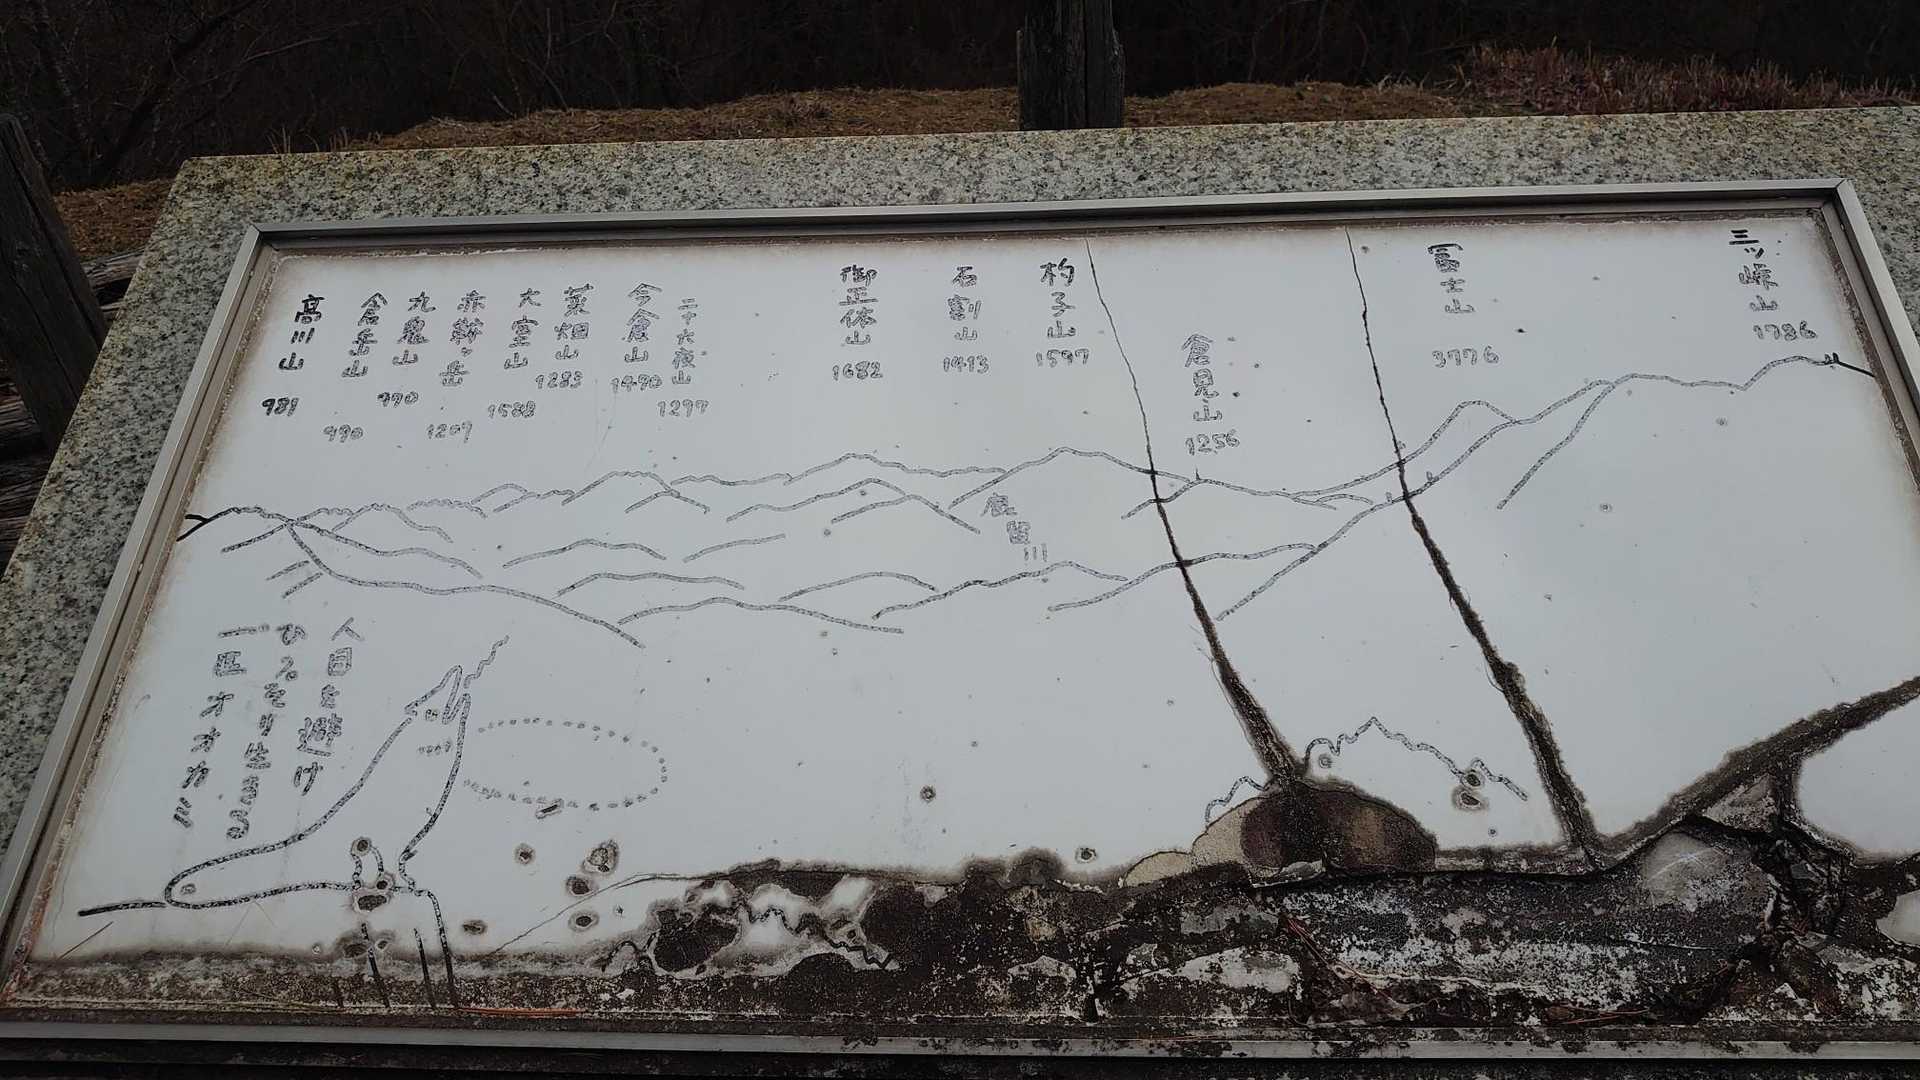 高川山
981
倉岳山
990
九鬼山
970
赤鞍ヶ岳
1207
大室山
1588
菜畑山
1283
今倉山
1470
二十六夜山
1297
御正体山
1682
石割山
1413
杓子山
1597
倉見山
1256
冨士山
3776
三ツ峠山
1786
鹿留川
人目を避け
ひっそり生きる
一匹オオカミ